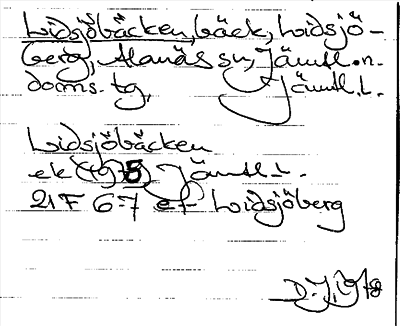 Lidsjöbäcken, bäck, Lidsjö-
berg, Alanäs sn, Jämtl. n.
doms. tg, Jämtl. l.
Lidsjöbäcken
ek (1975) Jämtl. l.
21F 6-7 e-f Lidsjöberg